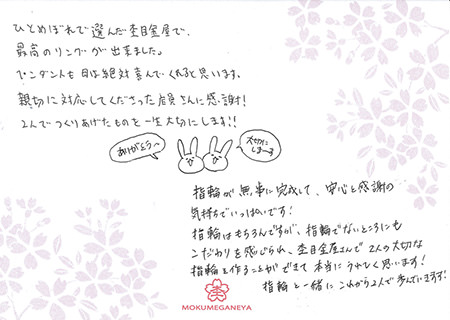 ひとめぼれで選んだ杢目金屋で、
最高のリングが出来ました。
ペンダントも母は絶対喜んでくれると思います。
親切に対応してくださった店員さんに感謝!
2人でつくりあげたものを一生大切にします!!
ありがとう〜
大切に
しま〜す
指輪が無事に完成して、安心と感謝の
気持ちでいっぱいです!
指輪はもちろんですが、指輪でないところにも
こだわりを感じられ、杢目金屋さんで2人の大切な
指輪を作ることができて本当にうれしく思います!
指輪と一緒にこれから2人で歩んでいきます!
MOKUMEGANEYA